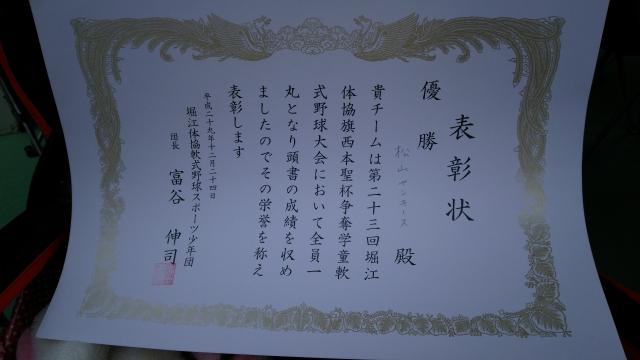 表彰状
優勝
松山ヤンキース 殿
貴チームは第二十三回堀江
体協旗西本聖杯争奪学童軟
式野球大会において全員一
丸となり頭書の成績を収め
ましたのでその栄誉を称え
表彰します
平成二十九年十二月二十四日
堀江体協軟式野球スポーツ少年団
団長 富谷 伸司